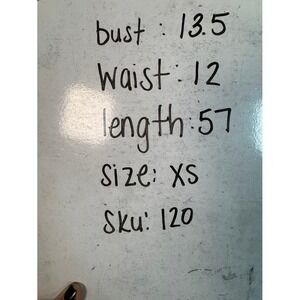 bust : 13.5
Waist: 12
length:57
size: XS
Sku: 120